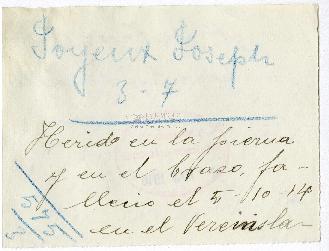 Joyeux Joseph
3-7
Herido en la pierna
y en el brazo, fa-
llecio el 5-10-14
en el Vereinsla-
575